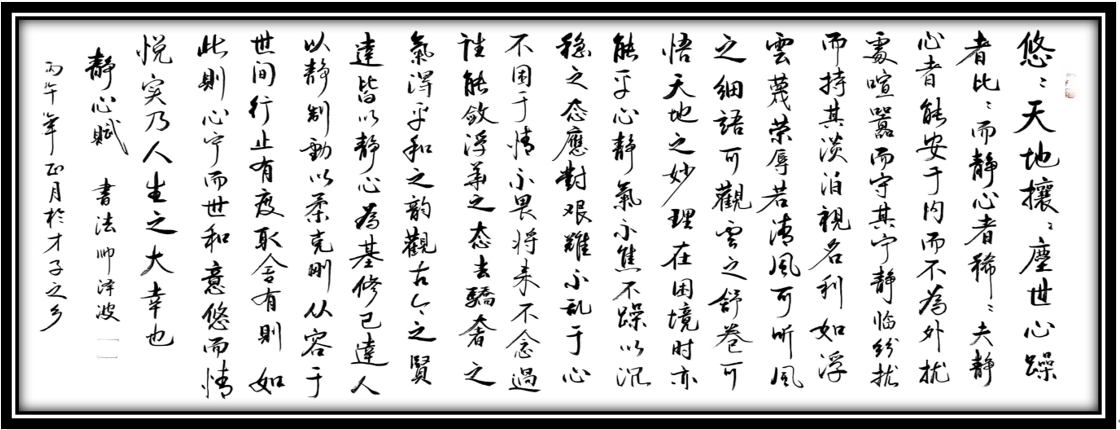 悠〻天地攘〻塵世心躁
者比〻而靜心者稀〻夫靜
心者能安于内而不為外扰
處喧囂而守其宁靜临紛扰
而持其淡泊視名利如浮
雲蔑荣辱若清風可听風
之細語可觀雲之舒卷可
悟天地之妙理在困境时亦
能平心靜氣不焦不躁以沉
稳之态應對艰難不乱于心
不困于情不畏将来不念過
往能敛浮华之态去驕奢之
氣得平和之韵觀古今之賢
達皆以靜心為基修己達人
以靜制動以柔克剛从容于
世间行止有度取舍有則如
此則心宁而世和意悠而情
悦实乃人生之大幸也
靜心賦 書法帅泽波
丙午年正月於才子之乡